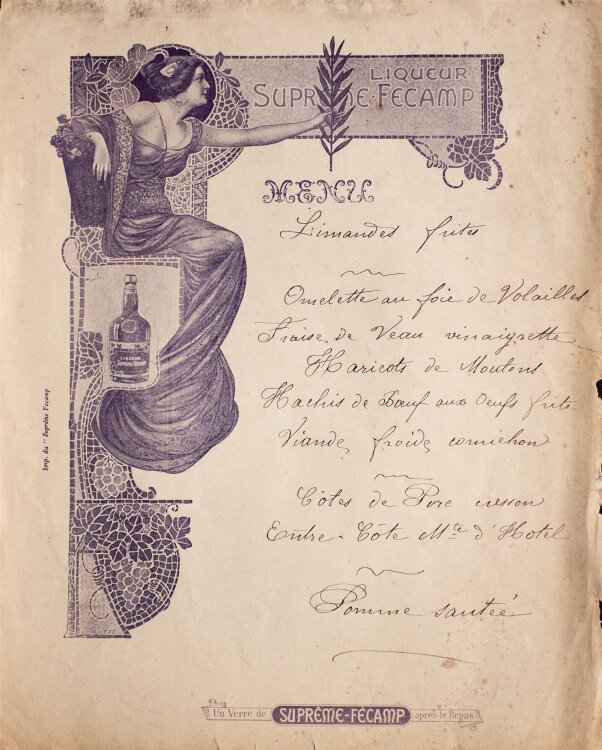 LIQUEUR
SUPRÊME-FÉCAMP
MENU
Limandes frites
Omelette au foie de Volailles
Fraise de Veau vinaigrette
Haricots de Moutons
Hachis de Bœuf aux Oeufs frits
Viande froide cornichon
Côtes de Porc cresson
Entre-Côte Mce d'Hotel
Pomme sautée
LIQUEUR
SUPRÊME-FÉCAMP
Imp. du "Suprême Fécamp
Un Verre de SUPRÊME-FÉCAMP après le Repas